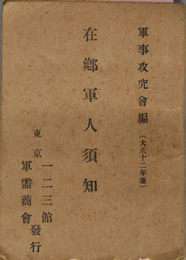 軍事攻究會編(大正十二年版)
在鄕軍人須知
東京
一二三館
軍需商會
發行